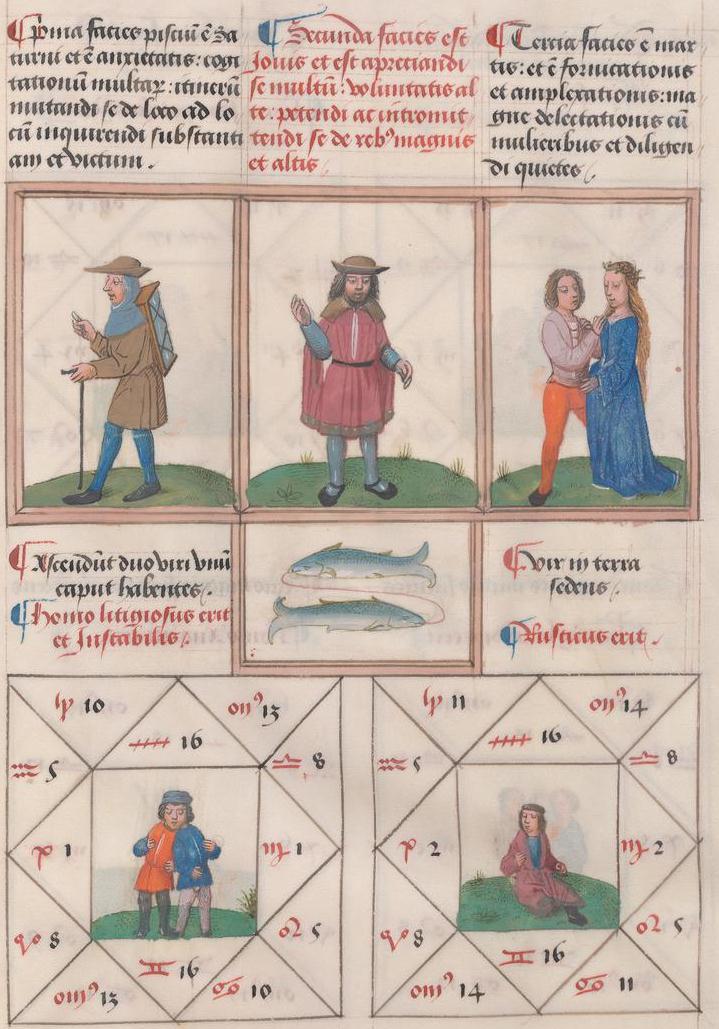 Prima facies pisciū ē Sa
turni et ē anxietatis: cogi
tationū multaꝝ: itinerū
mutandi se de loco ad lo
cū inquirendi substanti
am et victum.
Secunda facies est
Jouis et est apreciandi
se multū: voluntatis al
te: petendi ac intromit
tendi se de rebꝰ magnis
et altis
Tercia facies ē mar
tis: et ē fornicationis
et amplexationis: ma
gne delectationis cū
mulieribus et diligen
di quietes
Ascendūt duo viri vnū
caput habentes.
Homo litigiosus erit
et Instabilis.
vir in terra
sedens.
Rusticus erit.
10
13
16
♒ 5
♎ 8
1
♍ 1
8
♌ 5
♊ 16
13
♋ 10
11
14
16
♒ 5
♎ 8
2
♍ 2
8
♌ 5
♊ 16
14
♋ 11